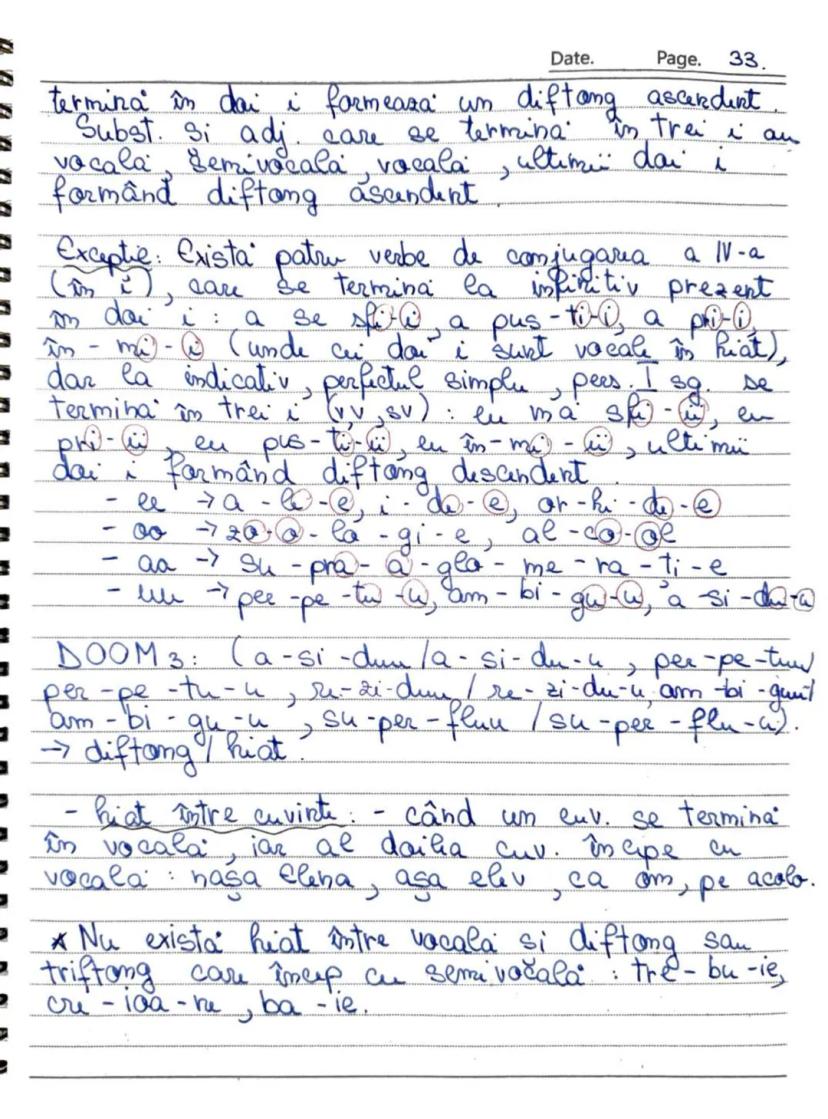 Date. Page. 33.
termină în doi i formează un diftong ascendent.
Subst. si adj. care se termină în trei i au
vocală, semivocală, vocală, ultimii doi i
formând diftong ascendent.
Excepție: Există patru verbe de conjugarea a IV-a
(în i), care se termină la infinitiv prezent
în doi i: a se sfi-i, a pus-ti-i, a pri-i,
în-mi-i (unde cei doi i sunt vocale în hiat),
dar la indicativ, perfectul simplu, pers. I sg. se
termină în trei i (v v, sv): eu mă sfi-ii, eu
pri-ii, eu pus-ti-ii, eu în-mi-ii, ultimii
doi i formând diftong descendent.
- ee → a-le-e, i-de-e, or-hi-de-e
- oo → zo-o-lo-gi-e, al-co-ol
- aa → su-pra-a-glo-me-ra-ți-e
- uu → per-pe-tu-u, am-bi-gu-u, a-si-du-u
DOOM 3: (a-si-duu/a-si-du-u, per-pe-tuu/
per-pe-tu-u, re-zi-duu/re-zi-du-u, am-bi-guu/
am-bi-gu-u, su-per-fluu/su-per-flu-u).
→ diftong/hiat.
- hiat între cuvinte: - când un cuv. se termină
în vocală, iar al doilea cuv. începe cu
vocală: nașa Elena, așa elev, ca om, pe acolo.
* Nu există hiat între vocală si diftong sau
triftong care încep cu semivocală: tre-bu-ie,
cre-ioa-ne, ba-ie.